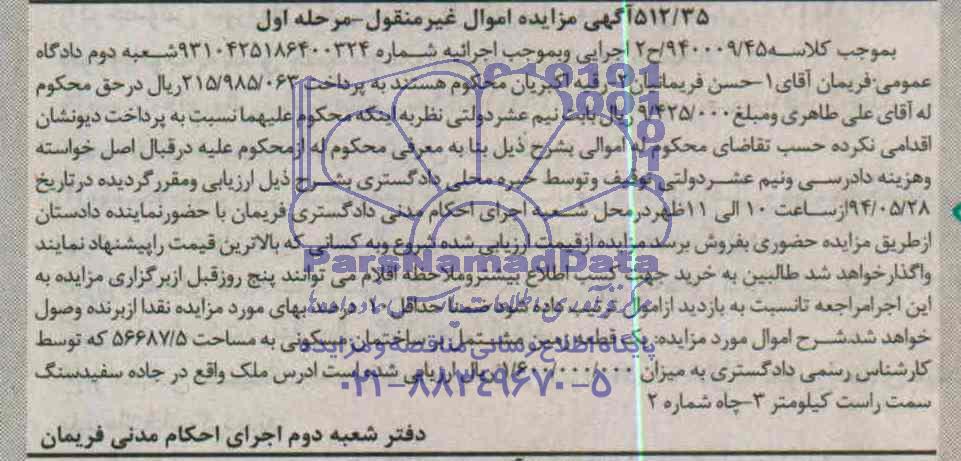 ۵۱۲/۳۵آگهی مزایده اموال غیرمنقول -مرحله اول
بموجب کلاسه۹۴۰۰۰۹/۴۵/ح۲ اجرایی وبموجب اجرائیه شماره ۹۳۱۰۴۲۵۱۸۶۴۰۰۳۲۴شعبه دوم دادگاه
عمومی-فریمان آقای۱-حسن فریمانیان ۲-رقیه اکبریان محکوم هستند به پرداخت ۲۱۵/۹۸۵/۰۶۳ریال درحق محکوم
له آقای علی طاهری ومبلغ۹/۴۲۵/۰۰۰ ریال بابت نیم عشردولتی نظربه اینکه محکوم علیهما نسبت به پرداخت دیونشان
اقدامی نکرده حسب تقاضای محکوم له اموالی بشرح ذیل بنا به معرفی محکوم له ازمحکوم علیه درقبال اصل خواسته
وهزینه دادرسی ونیم عشردولتی توقیف وتوسط خبره محلی دادگستری بشرح ذیل ارزیابی ومقررگردیده درتاریخ
۹۴/۰۵/۲۸ازساعت ۱۰ الی ۱۱ظهردرمحل شعبه اجرای احکام مدنی دادگستری فریمان با حضورنماینده دادستان
ازطریق مزایده حضوری بفروش برسد مزایده ازقیمت ارزیابی شده شروع وبه کسانی که بالاترین قیمت راپیشنهاد نمایند
واگذارخواهد شد طالبین به خرید جهت کسب اطلاع بیشتروملاحظه اقلام می توانند پنج روزقبل ازبرگزاری مزایده به
این اجرامراجعه تانسبت به بازدید ازاموال ترتیب داده شود ضمنا حداقل ۱۰ درصدبهای مورد مزایده نقدا ازبرنده وصول
خواهد شد.شرح اموال مورد مزایده: یک قطعه زمین مشتمل بر ساختمان مسکونی به مساحت ۵۶۶۸۷/۵ که توسط
کارشناس رسمی دادگستری به میزان ۱/۶۰۰/۰۰۰/۰۰۰ریال ارزیابی شده است ادرس ملک واقع در جاده سفیدسنگ
سمت راست کیلومتر ۳-چاه شماره ۲
دفتر شعبه دوم اجرای احکام مدنی فریمان
ParsNamadData
پایگاه اطلاع رسانی مناقصه و مزایده
۰۲۱-۸۸۳۴۹۶۷۰-۵